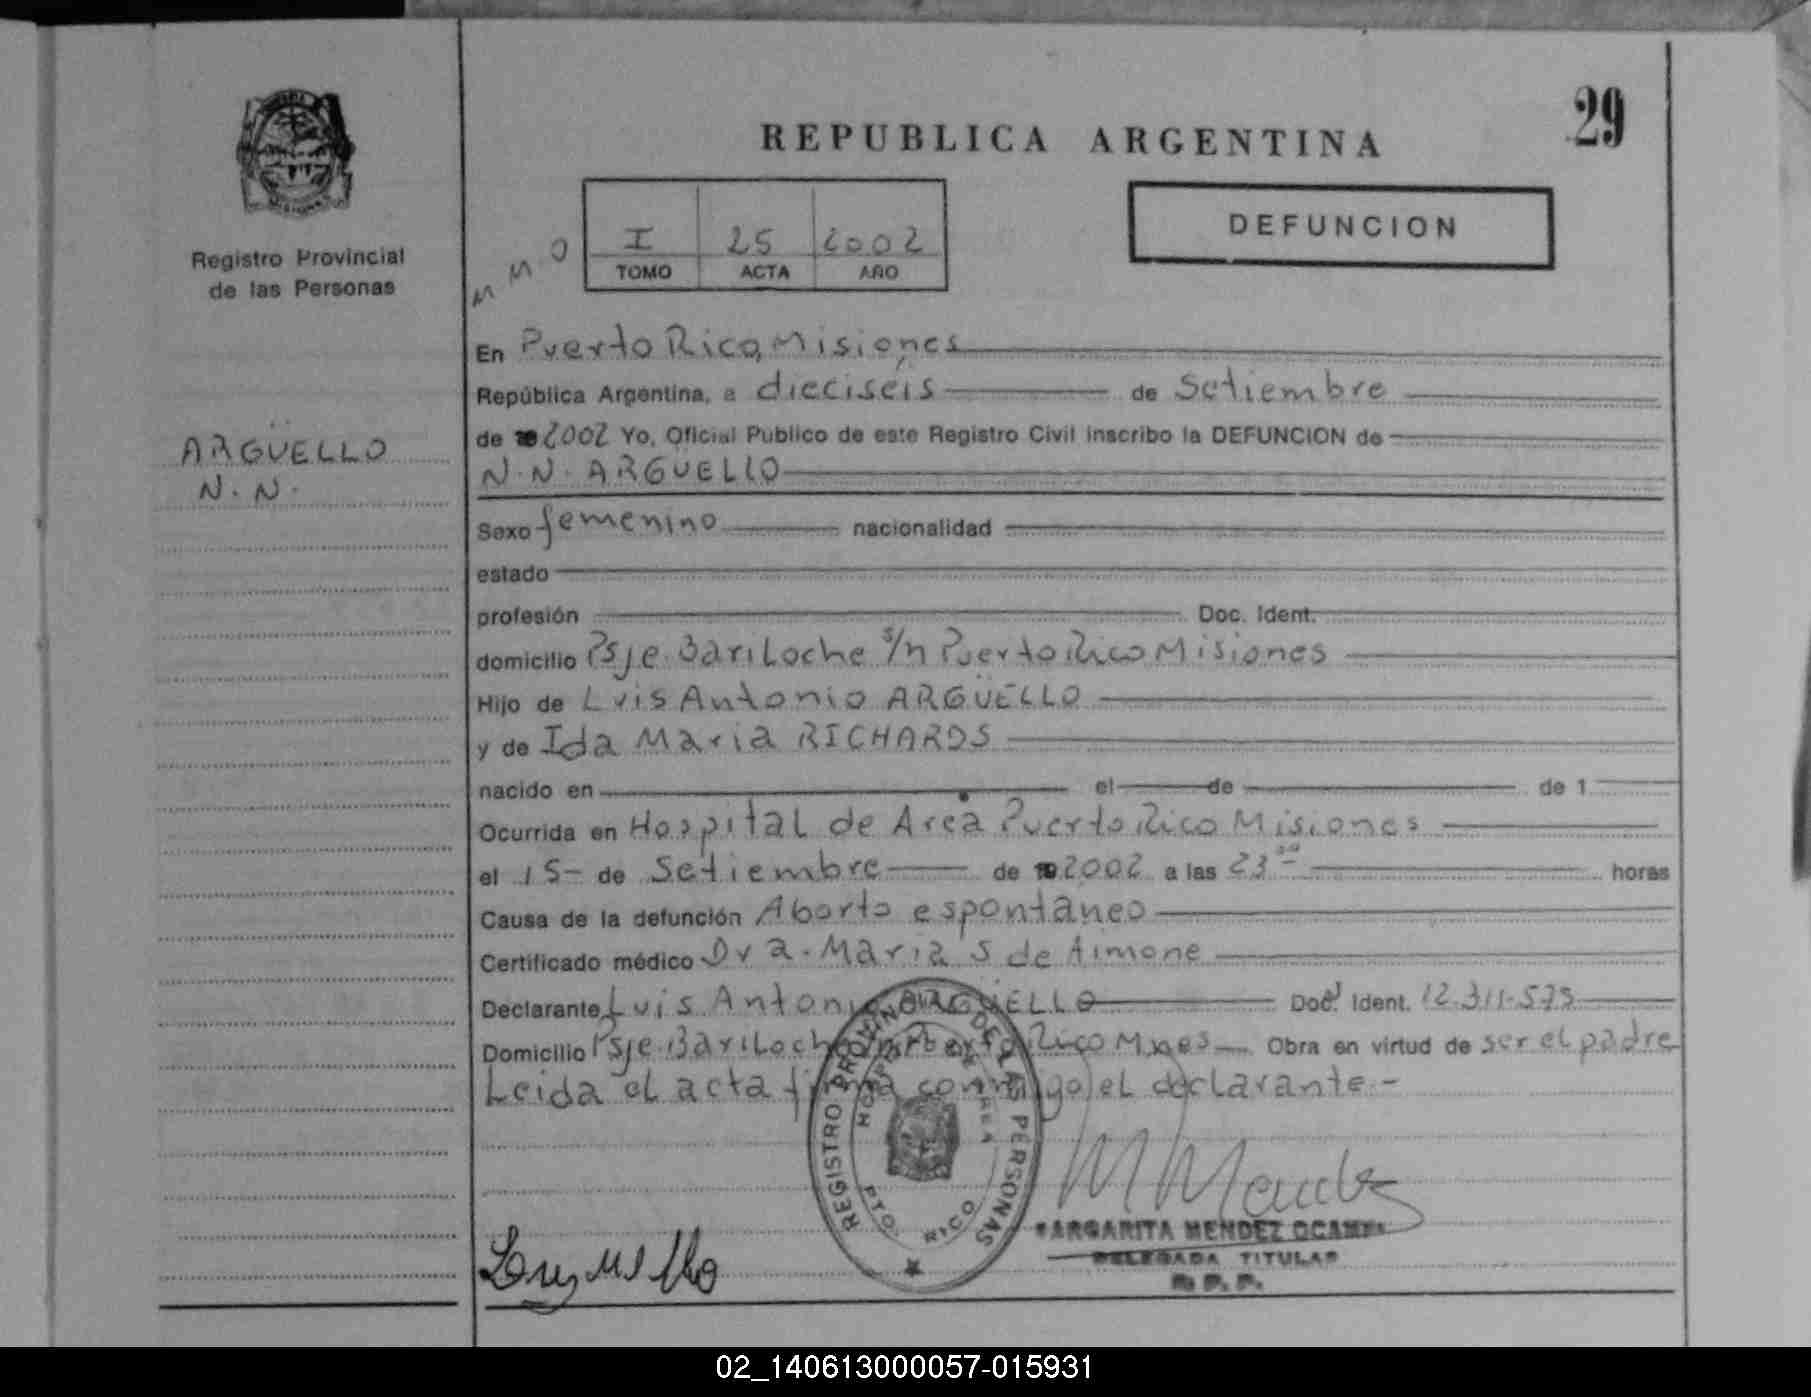 29
REPUBLICA ARGENTINA
DEFUNCION
I 25 2002
TOMO ACTA AÑO
M M O
Registro Provincial
de las Personas
ARGÜELLO
N. N.
En Puerto Rico, Misiones
República Argentina, a dieciséis de Setiembre
de 2002 Yo, Oficial Publico de este Registro Civil inscribo la DEFUNCION de
N. N. ARGÜELLO
Sexo femenino nacionalidad
estado
profesión Doc. Ident.
domicilio Psje. Bariloche s/n Puerto Rico Misiones
Hijo de Luis Antonio ARGÜELLO
y de Ida Maria RICHARDS
nacido en el de de 1
Ocurrida en Hospital de Area Puerto Rico Misiones
el 15 - de Setiembre de 2002 a las 23 horas
Causa de la defunción Aborto espontáneo
Certificado médico Dra. Maria S de Aimone
Declarante Luis Antonio ARGÜELLO Doc. Ident. 12.311.575
Domicilio Psje. Bariloche Rico Mnes Obra en virtud de ser el padre
Leida el acta firma conmigo el declarante.-
REGISTRO PROVINCIAL DE LAS PERSONAS
HOSPITAL DE AREA
PTO. RICO
MARGARITA MENDEZ OCAMPO
DELEGADA TITULAR
R. P. P.
02_140613000057-015931